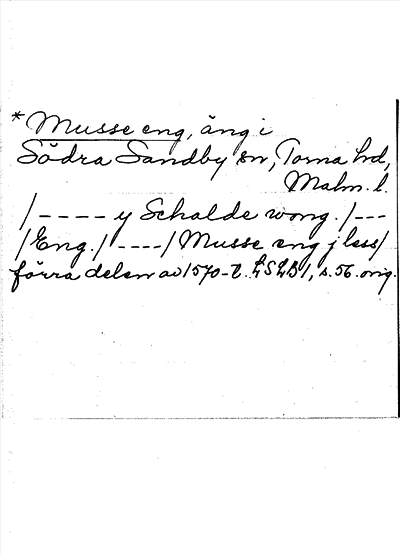 * Musse eng, äng i
Södra Sandby sn, Torna hd,
Malm. l.
/---- y Schalde wong. /---
/Eng. / ----/ Musse eng j less/
förra delen av 1570-t. LSLB1, s. 56. orig.